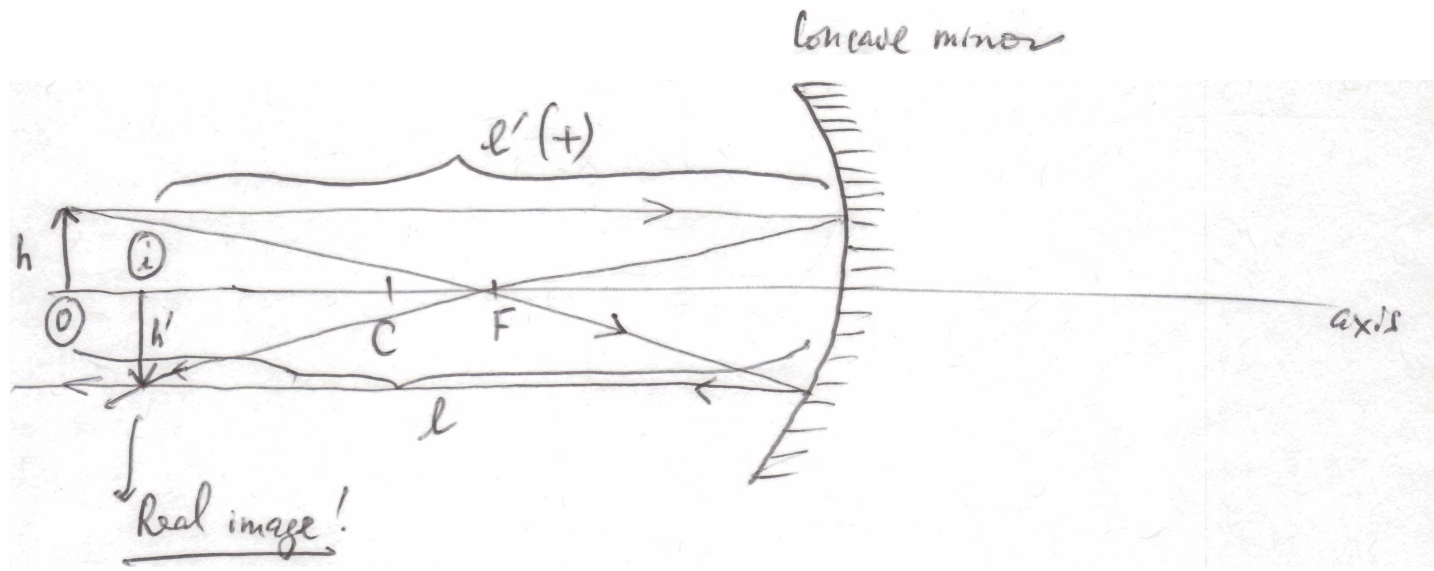 Concave mirror
l' (+)
h
i
O
h'
C
F
axis
l
Real image!